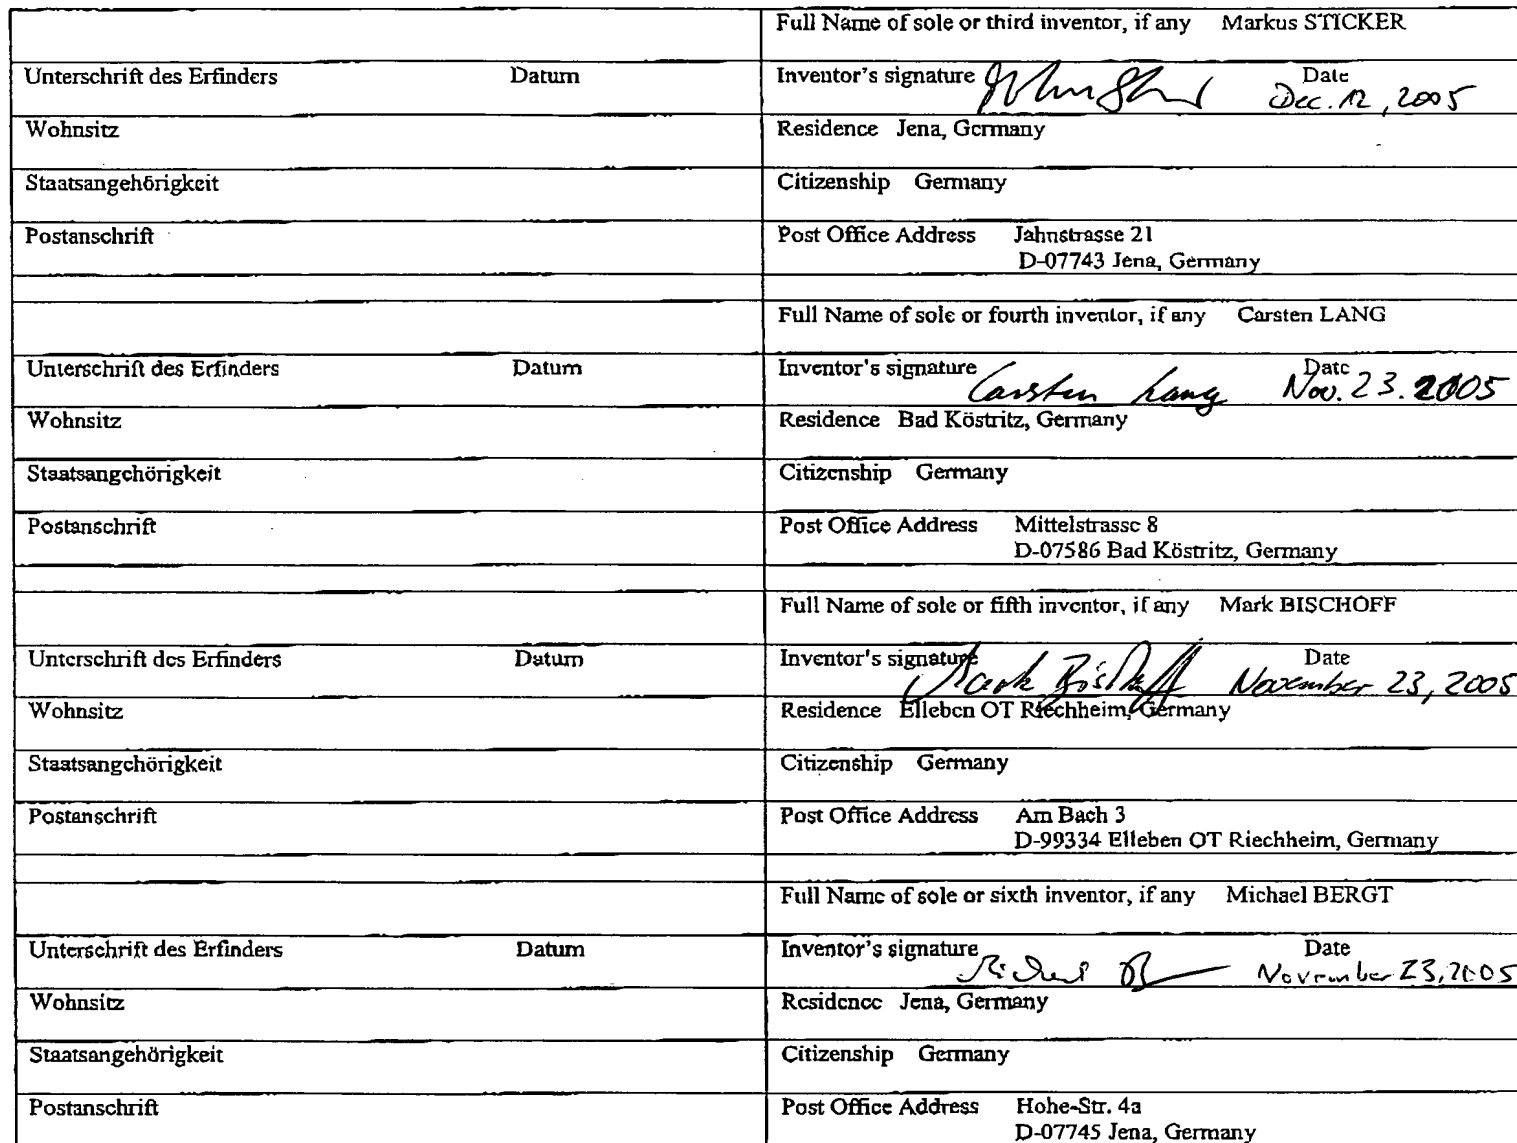 Full Name of sole or third inventor, if any Markus STICKER
Unterschrift des Erfinders Datum Inventor's signature Date
Dec. 12, 2005
Wohnsitz Residence Jena, Germany
Staatsangehörigkeit Citizenship Germany
Postanschrift Post Office Address Jahnstrasse 21
D-07743 Jena, Germany
Full Name of sole or fourth inventor, if any Carsten LANG
Unterschrift des Erfinders Datum Inventor's signature Date
Carsten Lang Nov. 23. 2005
Wohnsitz Residence Bad Köstritz, Germany
Staatsangehörigkeit Citizenship Germany
Postanschrift Post Office Address Mittelstrasse 8
D-07586 Bad Köstritz, Germany
Full Name of sole or fifth inventor, if any Mark BISCHOFF
Unterschrift des Erfinders Datum Inventor's signature Date
Mark Bischoff November 23, 2005
Wohnsitz Residence Elleben OT Riechheim, Germany
Staatsangehörigkeit Citizenship Germany
Postanschrift Post Office Address Am Bach 3
D-99334 Elleben OT Riechheim, Germany
Full Name of sole or sixth inventor, if any Michael BERGT
Unterschrift des Erfinders Datum Inventor's signature Date
Michael November 23, 2005
Wohnsitz Residence Jena, Germany
Staatsangehörigkeit Citizenship Germany
Postanschrift Post Office Address Hohe-Str. 4a
D-07745 Jena, Germany